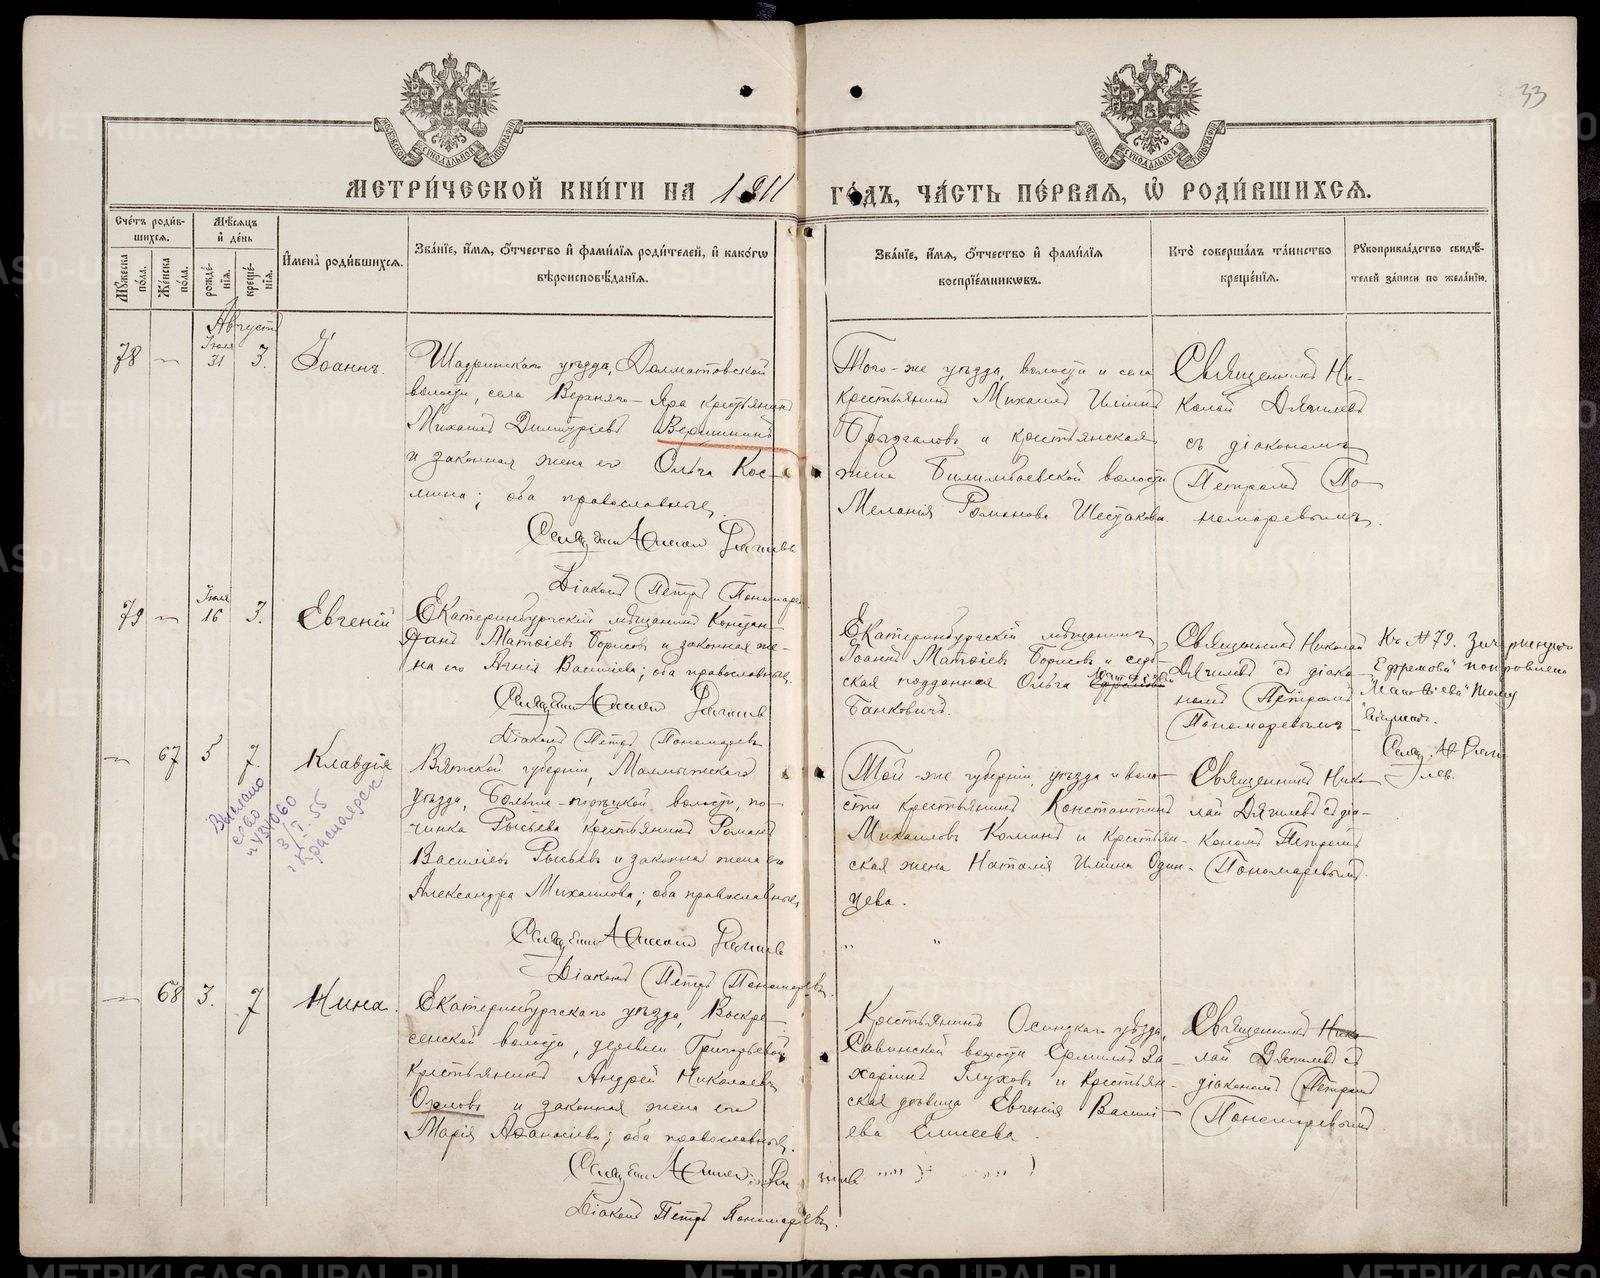 33
МЕТРИ́ЧЕСКОЙ КНИ́ГИ НА 1911 ГО́ДЪ, ЧА́СТЬ ПЕ́РВАЯ, Ѽ РОДИ́ВШИХСЯ.
Сче́тъ роди́в-
шихся.
Мꙋ́жеска по́ла.
Же́нска по́ла.
Мѣ́сяцъ
и҆ де́нь
рожде́-
нїя.
креще́-
нїя.
И҆мена̀ роди́вшихся.
Зва́нїе, и҆́мя, ѻ҆́тчество и҆ фами́лїя роди́телей, и҆ како́гѡ
вѣроисповѣ́данїя.
Зва́нїе, и҆́мя, ѻ҆́тчество и҆ фами́лїя
воспрїе́мникѡвъ.
Кто̀ соверша́лъ та́инство
креще́нїя.
Рꙋкоприкла́дство свидѣ́-
телей за́писи по жела́нїю.
Августъ
78 — Іюля 31 3. Іоаннъ.
Шадринскаго уѣзда, Далматовской
волости, села Верхняго-Яра крестьянинъ
Михаилъ Димитріевъ Вершининъ
и законная жена его Ольга Кос-
мина; оба православные.
Діаконъ Петръ Пономарев
Того-же уѣзда, волости и села
крестьянинъ Михаилъ Иліинъ
Брызгаловъ и крестьянская
жена Билимбаевской волости
Меланія Романова Шестакова.
Священникъ Ни-
колай Дягилевъ
съ діакономъ
Петромъ По-
номаревымъ.
79 — Іюля 16 3. Евгеній
Екатеринбургскій мѣщанинъ Констан-
тинъ Матѳіевъ Борисовъ и законная же-
на его Агнія Василіева; оба православные.
Діаконъ Петръ Пономаревъ
Екатеринбургскій мѣщанинъ
Іоаннъ Матѳіевъ Борисовъ и серб-
ская подданная Ольга Ефремова
Банковичъ.
Священникъ Николай
Дягилевъ съ діако-
номъ Петромъ
Пономаревымъ
Къ № 79. Зачеркнуто
"Ефремова" поправлено
"Матѳіева" тому
— 67 5 7. Клавдія
Вятской губерніи, Малмыжскаго
уѣзда, волости, по-
чинка Рысьева крестьянинъ Романъ
Василіевъ Рысьевъ и законная жена его
Александра Михаилова; оба православные,
Діаконъ Петръ Пономаревъ.
Той-же губерніи, уѣзда и воло-
сти крестьянинъ Константинъ
Михаиловъ Коминъ и крестьян-
ская жена Наталія Иліина Один-
цева.
Священникъ Нико-
лай Дягилевъ съ діа-
кономъ Петромъ
Пономаревымъ.
Выслано
3/I.55
г. Красноярск
— 68 3. 7 Нина.
Екатеринбургскаго уѣзда, Воскре-
сенской волости, деревни Григорьевой
крестьянинъ Андрей Николаевъ
Орловъ и законная жена его
Марія Аѳанасіева; оба православные.
Діаконъ Петръ Пономаревъ.
Крестьянинъ Осинскаго уѣзда,
Савинской волости Ермилъ За-
харіинъ Глуховъ и крестьян-
ская дѣвица Евгенія Василі-
ева Елисеева.
Священникъ Нико-
лай Дягилевъ съ
діакономъ Петромъ
Пономаревымъ
METRIKI.GASO-URAL.RU